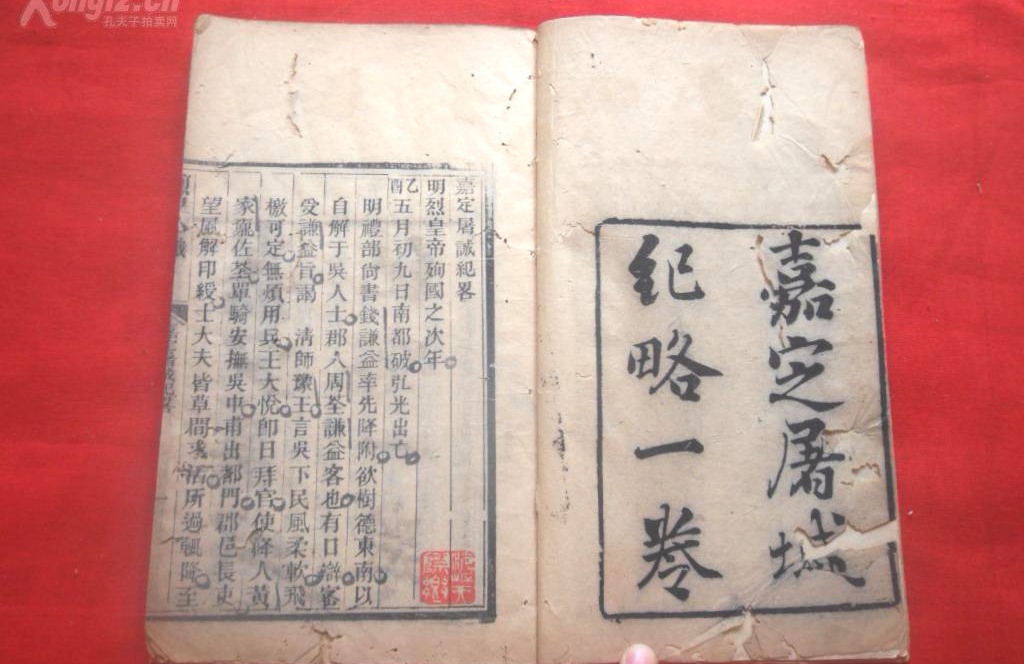 嘉定屠城
紀略一卷
嘉定屠城紀畧
明烈皇帝殉國之次年
乙酉五月初九日南都破弘光出亡
明禮部尙書錢謙益率先降附欲樹德東南以
自解于吳人士郡人周荃謙益客也有口辯密
受謙益旨謁 淸師豫王言吳下民風柔軟飛
檄可定無煩用兵王大悅卽日拜官使降人黃
家鼒佐荃單騎安撫吳中甫出都門郡邑長吏
望風解印綬士大夫皆草間求活所過輒降至
孔夫子拍卖网